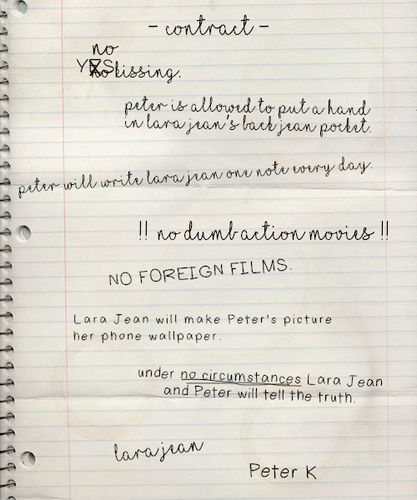 - contract -
no
YES! no kissing.
peter is allowed to put a hand
in lara jean's back jean pocket.
peter will write lara jean one note every day.
!! no dumb action movies !!
NO FOREIGN FILMS.
Lara Jean will make Peter's picture
her phone wallpaper.
under no circumstances Lara Jean
and Peter will tell the truth.
lara jean
Peter K